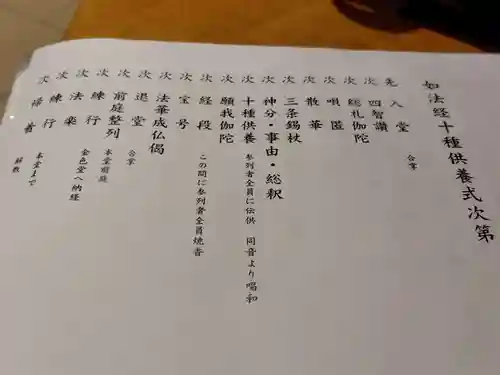 如法経十種供養式次第
先 入堂 合掌
次 四智讃
次 総礼伽陀
次 唄匿
次 散華
次 三条錫杖
次 神分・事由・総釈
次 十種供養 参列者全員に伝供 同音より唱和
次 願我伽陀
次 経段 この間に参列者全員焼香
次 宝号
次 法華成仏偈
次 退堂 合掌
次 前庭整列 本堂前庭
次 練行
次 法楽 金色堂へ納経
次 練行
次 帰着 本堂まで 解散